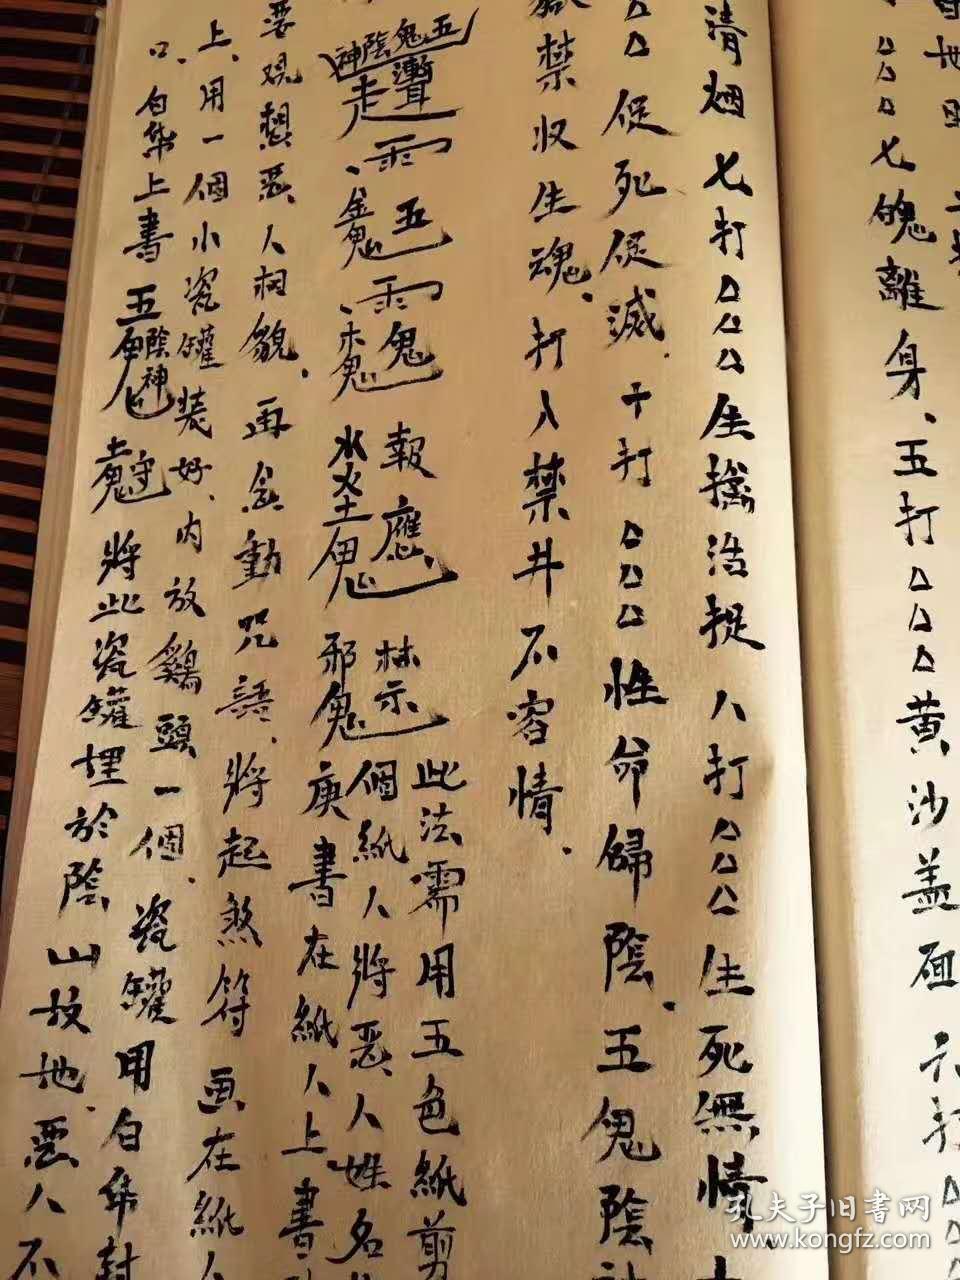 七魄離身、五打△△△黃沙盖面 六打△△△
清烟 七打△△△生擒活捉 八打△△△生死無情、
△△促死促滅. 十打△△△性命歸陰. 五鬼陰神
獄禁收生魂、打入禁井不容情.
五鬼陰神
五 鬼 報應 禁 此法需用五色紙剪
金鬼 木鬼 水火土鬼 邪鬼 個紙人將惡人姓名
庚書在紙人上、書
要观想惡人相貌、再念動咒語、將起煞符画在紙人
上、用一個小瓷罐装好、内放鷄頭一個、瓷罐用白布封
口、白布上書五鬼陰神守 將此瓷罐埋於陰山坟地、惡人不
孔夫子旧书网
www.kongfz.com